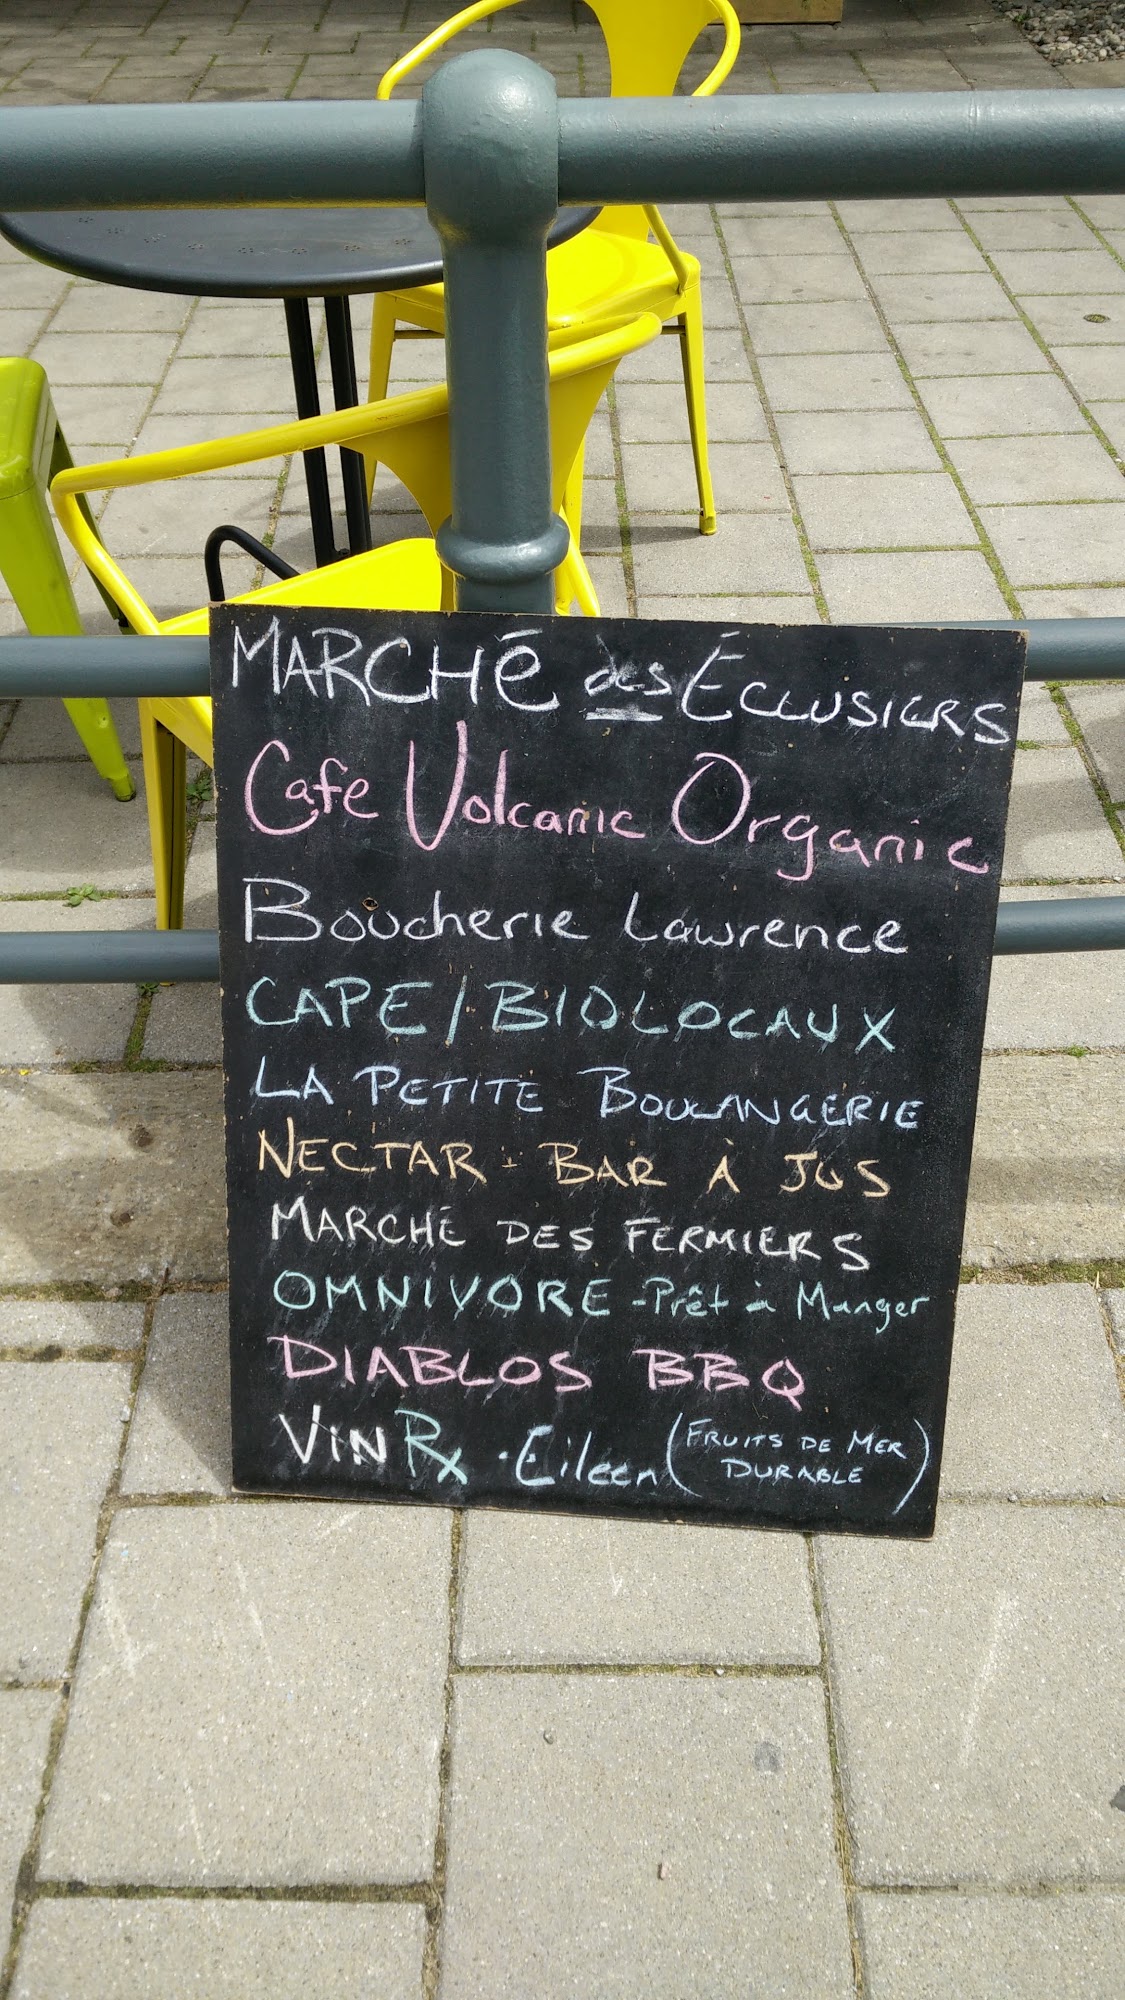 MARCHÉ des ÉCLUSIERS
Cafe Volcanic Organic
Boucherie Lawrence
CAPE/BIOLOCAUX
LA PETITE BOULANGERIE
NECTAR - BAR À JUS
MARCHÉ DES FERMIERS
OMNIVORE - Prêt à Manger
DIABLOS BBQ
VIN Rx · Eileen (FRUITS DE MER
DURABLE)